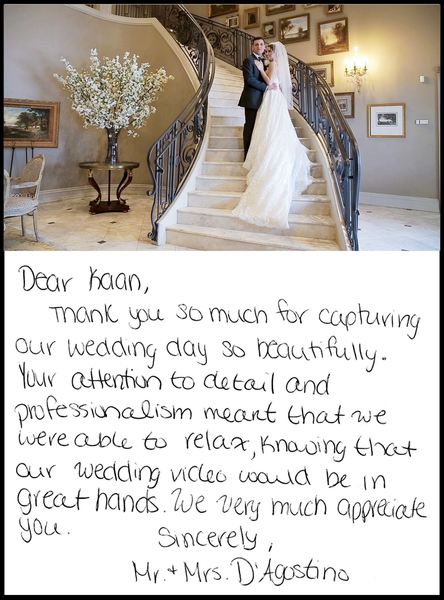 Dear Kaan,
Thank you so much for capturing
our wedding day so beautifully.
Your attention to detail and
professionalism meant that we
were able to relax, knowing that
our wedding video would be in
great hands. We very much appreciate
you.
Sincerely,
Mr. + Mrs. D'Agostino